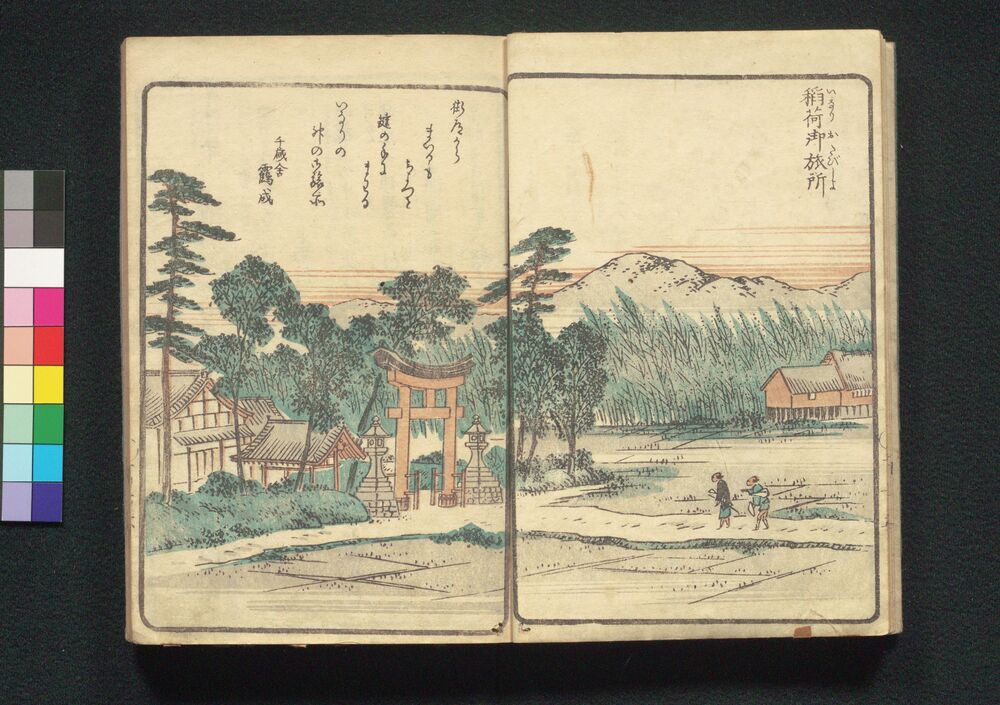 稲荷御旅所
いなり おたびしよ
街道から
まつかも
鍵の手に
まはる
いなりの
神の御旅所
千歳舎
鶴成